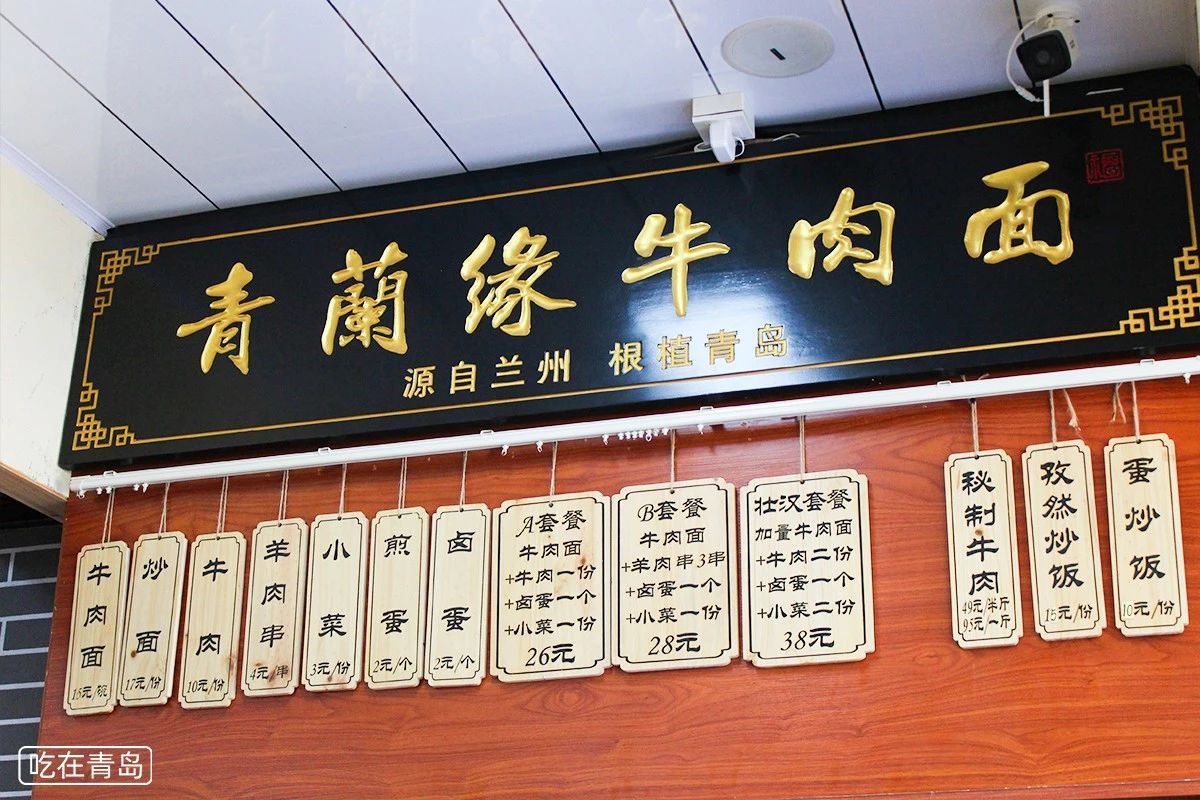 青蘭缘牛肉面
源自兰州 根植青岛
牛肉面
15元/碗
炒面
17元/份
牛肉
10元/份
羊肉串
4元/串
小菜
3元/份
煎蛋
2元/个
卤蛋
2元/个
A套餐
牛肉面
+牛肉一份
+卤蛋一个
+小菜一份
26元
B套餐
牛肉面
+羊肉串3串
+卤蛋一个
+小菜一份
28元
壮汉套餐
加量牛肉面
+牛肉二份
+卤蛋一个
+小菜二份
38元
秘制牛肉
49元/半斤
95元/一斤
孜然炒饭
15元/份
蛋炒饭
10元/份
吃在青岛